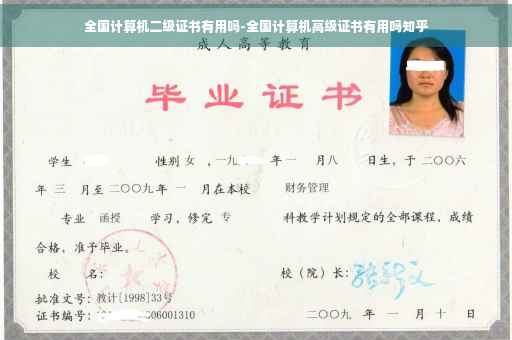 全国计算机二级证书有用吗-全国计算机高级证书有用吗知乎
成人高等教育
毕业证书
学生 性别 女 ,一九 年 一 月八 日生，于 二〇〇六
年 三 月至 二〇〇九 年 一 月在本校 财务管理
专业 函授 学习，修完 专 科教学计划规定的全部课程，成绩
合格，准予毕业。
校 名： 校（院）长：
批准文号：教计[1998]33号
证书编号： 06001310 二〇〇九 年 一 月 十 日